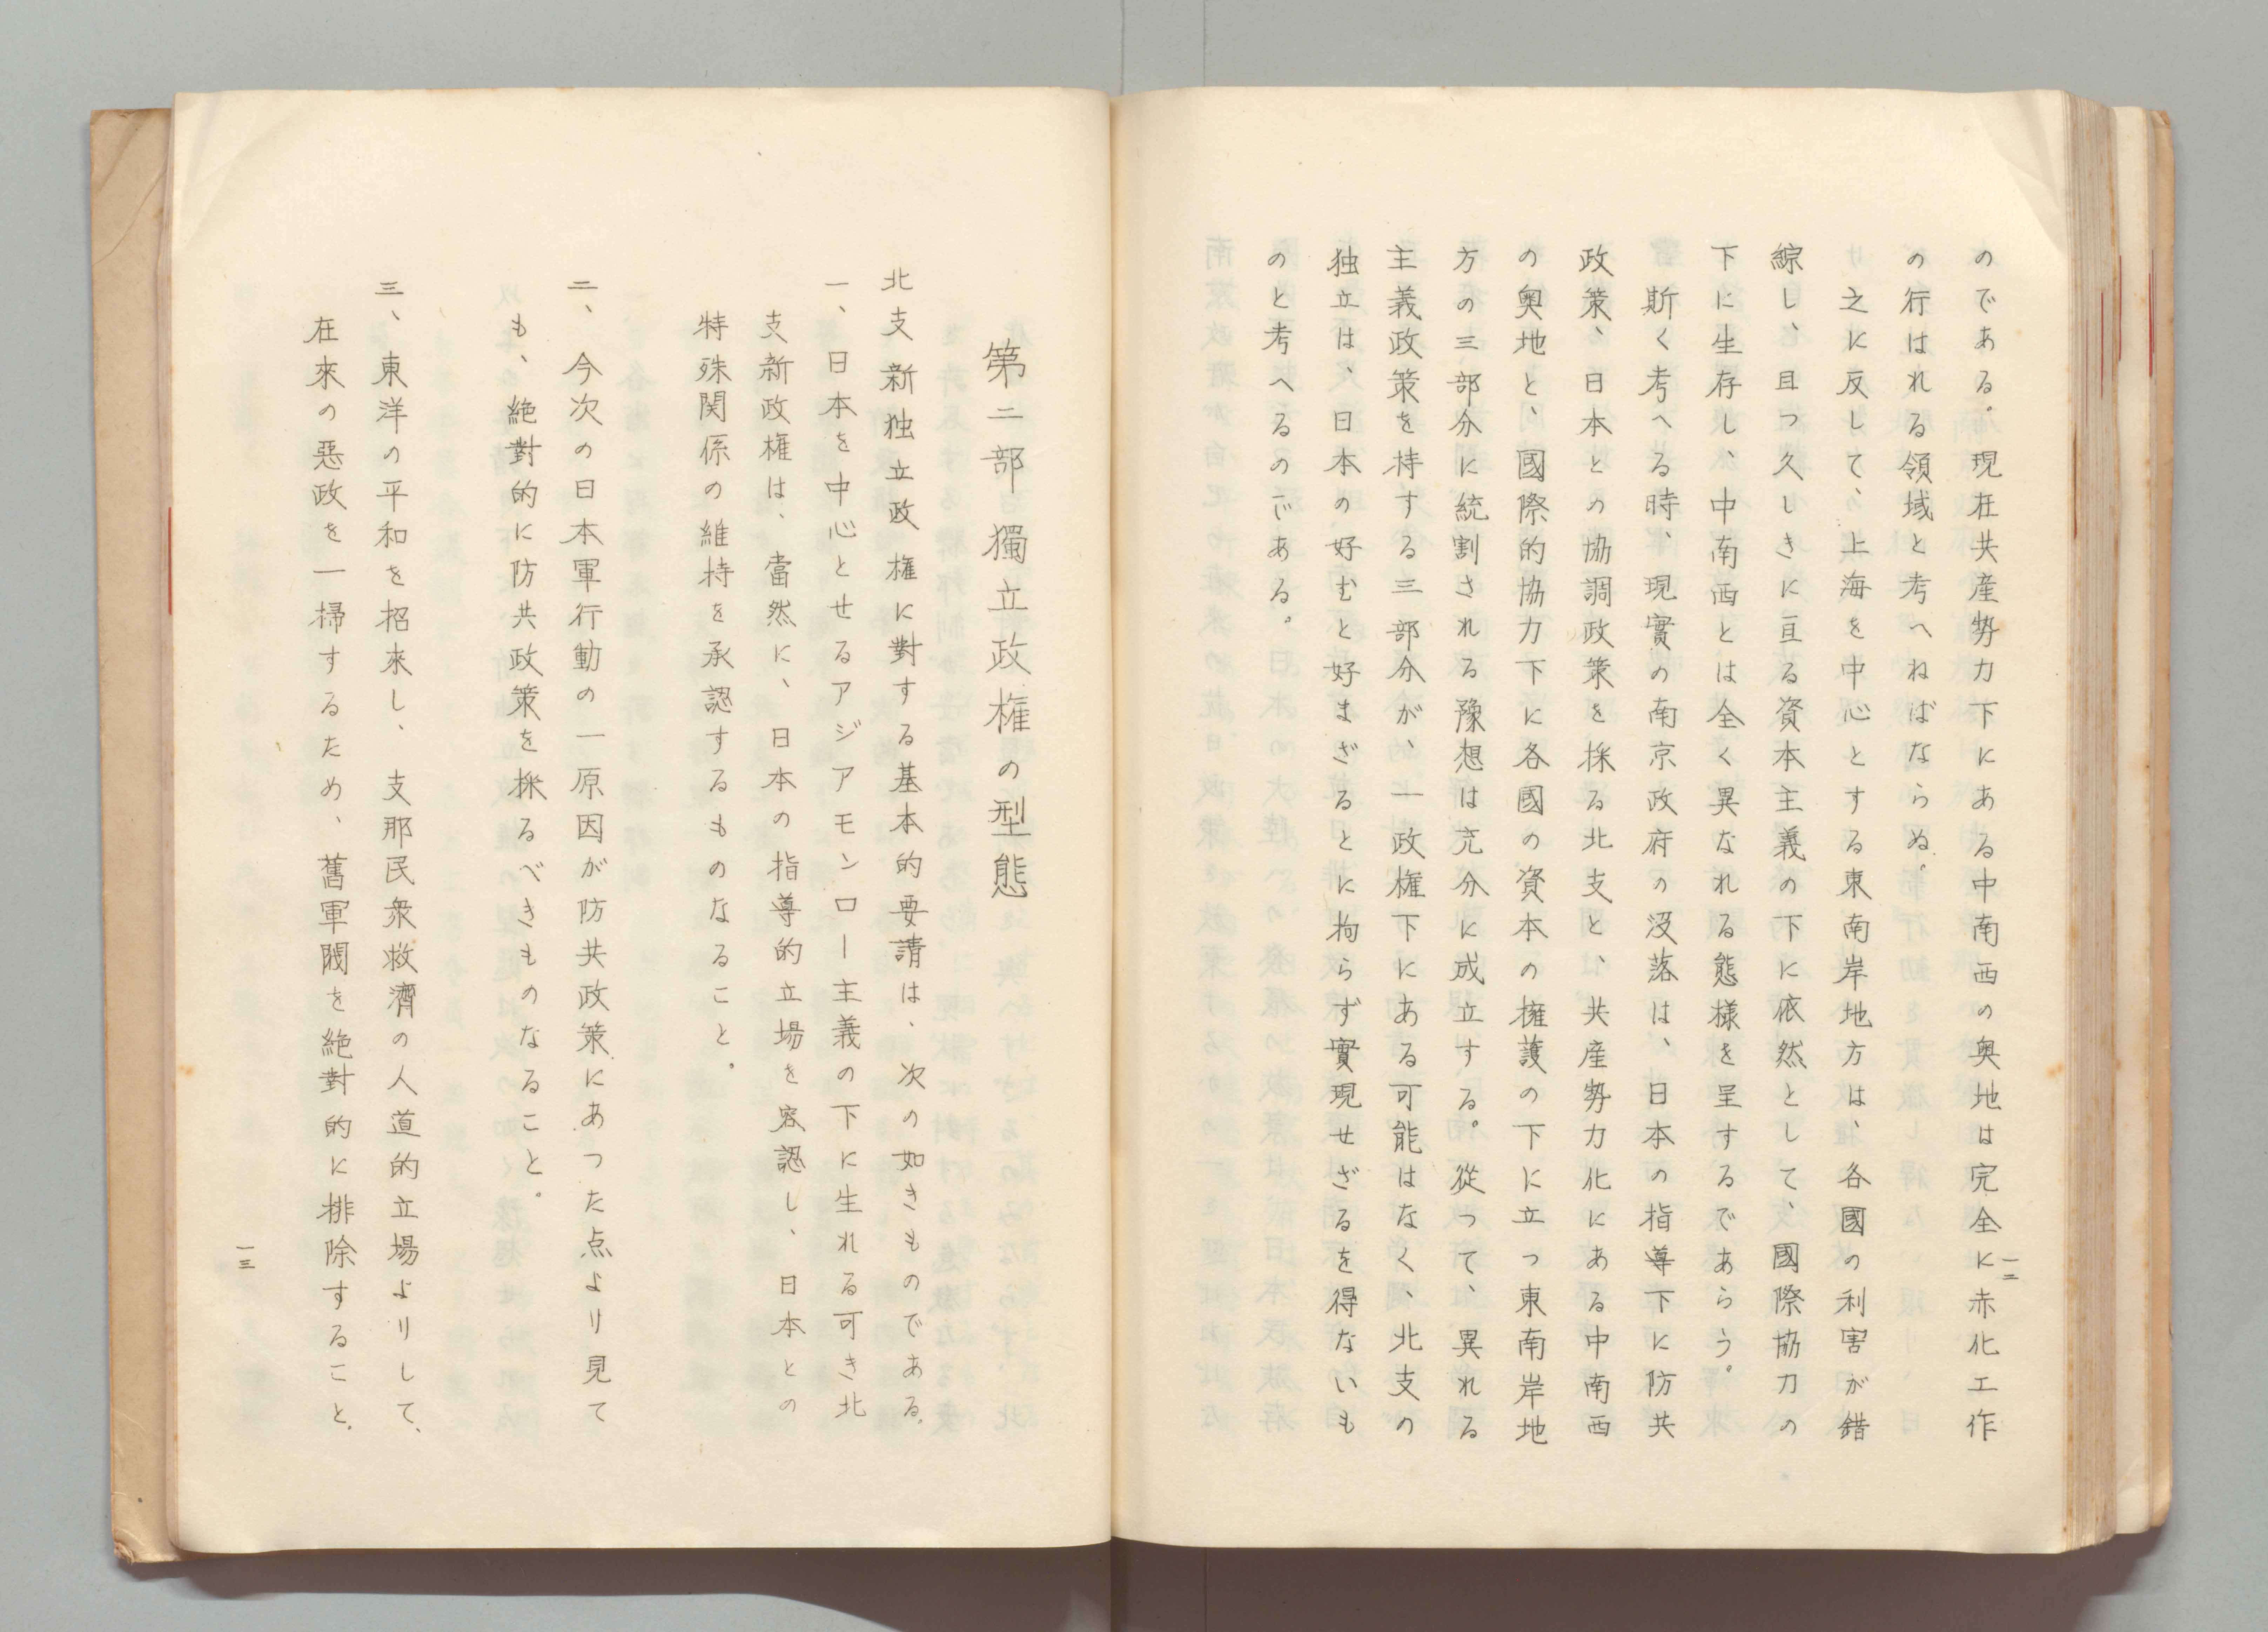 のである。現在共産勢力下にある中南西の奥地は完全に赤化工作
の行はれる領域と考へねばならぬ。
之に反して、上海を中心とする東南岸地方は、各國の利害が錯
綜し、且つ久しきに亘る資本主義の下に依然として、國際協力の
下に生存し、中南西とは全く異なれる態様を呈するであらう。
斯く考へる時、現實の南京政府の没落は、日本の指導下に防共
政策、日本との協調政策を採る北支と、共産勢力化にある中南西
の奥地と、國際的協力下に各國の資本の擁護の下に立つ東南岸地
方の三部分に統割される豫想は充分に成立する。從つて、異れる
主義政策を持する三部分が、一政権下にある可能はなく、北支の
独立は、日本の好むと好まざるとに拘らず實現せざるを得ないも
のと考へるのである。
一二
第二部 獨立政権の型態
北支新独立政権に對する基本的要請は、次の如きものである。
一、日本を中心とせるアジアモンロー主義の下に生れる可き北
支新政権は、當然に、日本の指導的立場を容認し、日本との
特殊関係の維持を承認するものなること。
二、今次の日本軍行動の一原因が防共政策にあつた点より見て
も、絶對的に防共政策を採るべきものなること。
三、東洋の平和を招来し、支那民衆救濟の人道的立場よりして、
在來の悪政を一掃するため、舊軍閥を絶對的に排除すること。
一三